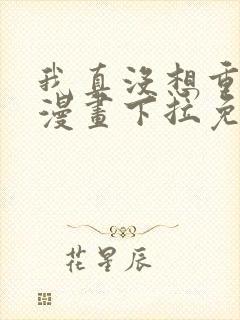 我真沒想重
漫畫下拉免
花星辰